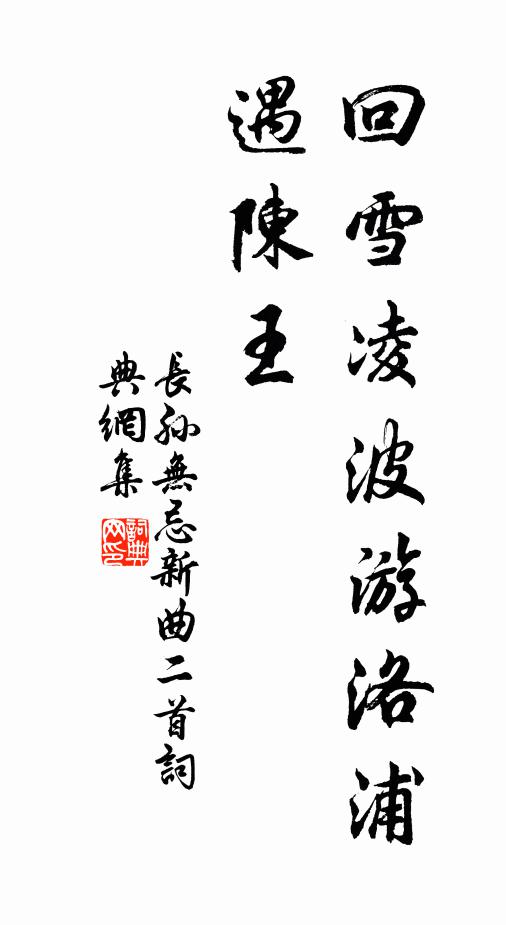 回雪凌波游洛浦
遇陳王
長孫無忌新曲二首詞
典網集
詞典网印